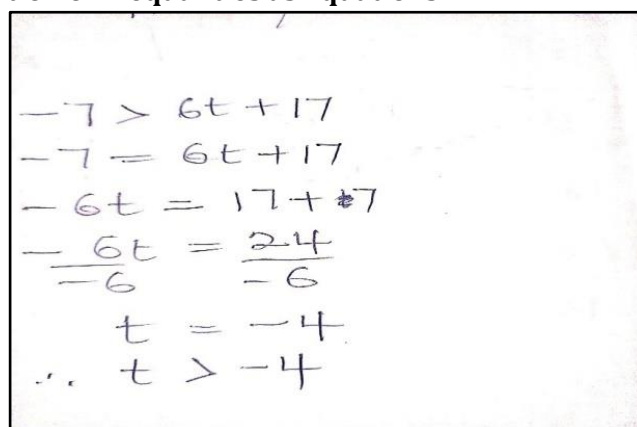 -7 > 6t + 17
-7 = 6t + 17
-6t = 17 + 7
-6t/-6 = 24/-6
t = -4
∴ t > -4